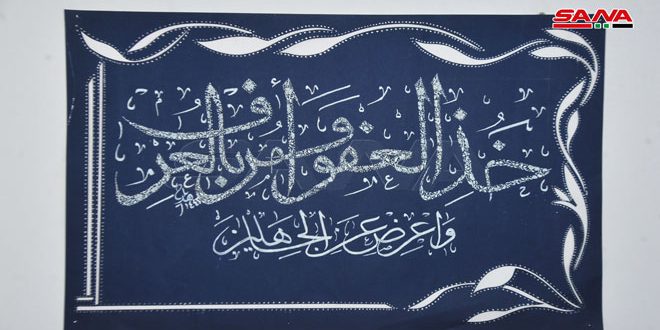 SANA
خذ العفو وأمر بالعرف
واعرض عن الجاهلين